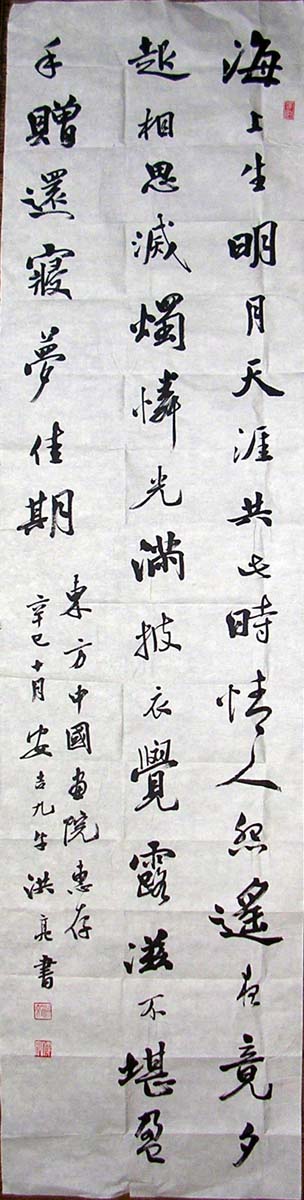 海上生明月天涯共此時情人怨遙夜竟夕
起相思滅燭憐光滿披衣覺露滋不堪盈
手贈還寢夢佳期
東方中國畫院惠存
辛巳十月安吉九午洪亮書